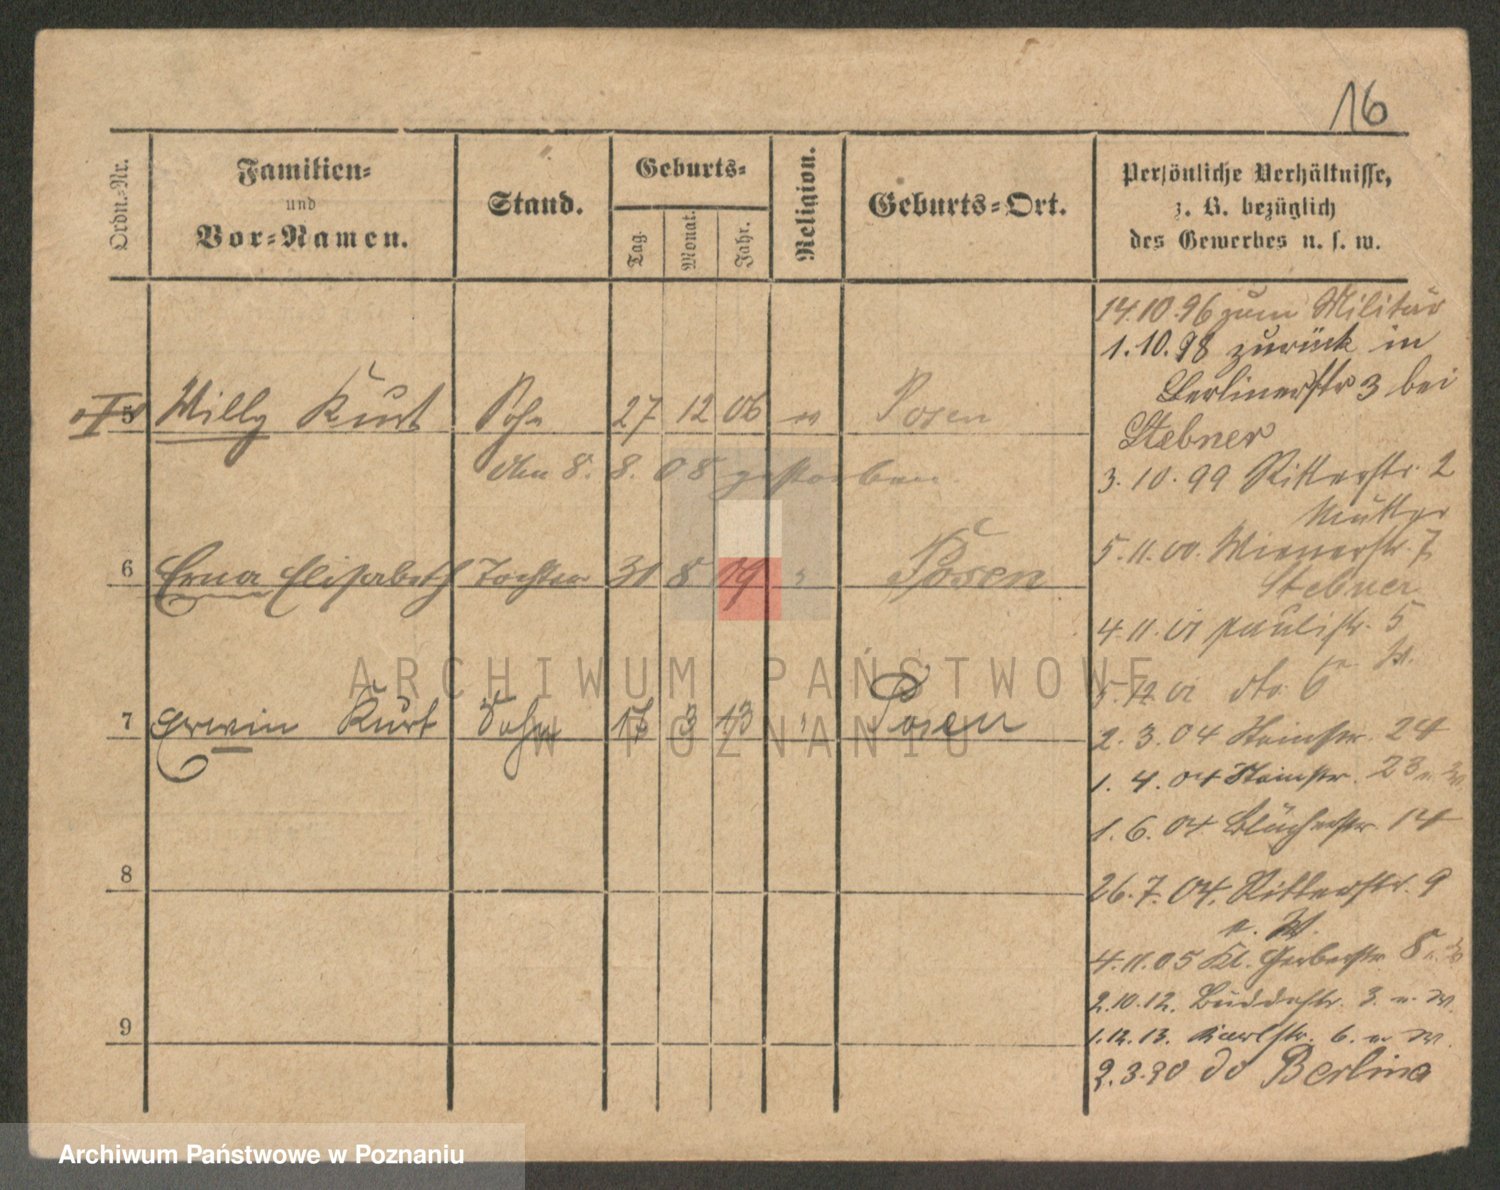 16
Ordn.-Nr.
Familien-
und
Vor-Namen.
Stand.
Geburts-
Tag.
Monat.
Jahr.
Religion.
Geburts-Ort.
Persönliche Verhältnisse,
z. B. bezüglich
des Gewerbes u. s. w.
14.10.96 zum Militär
1.10.98 zurück in
Berlinerstr 3 bei
Stebner
3.10.99 Ritterstr. 2
Mutter
5.11.00. Wienerstr. 7
Stebner
4.11.01 Paulistr. 5
5.12.01 dto. 6
2.3.04 Steinstr. 24
1.4.04 Steinstr. 23 u. W
1.6.04 Blücherstr. 14
26.7.04. Ritterstr. 9
u. W.
4.11.05 Kl. Gerberstr. 8 u. W
2.10.12. Buddestr. 3. u. W.
1.12.13. Karlstr. 6. u W.
2.3.20 do Berlina
5 Willy Kurt Sohn 27 12 06 Posen
den 8. 8. 08 gestorben
6 Erna Elisabeth Tochter 31 8 09 Posen
7 Erwin Kurt Sohn 13 3 13 Posen
8
9
ARCHIWUM PAŃSTWOWE
W POZNANIU
Archiwum Państwowe w Poznaniu